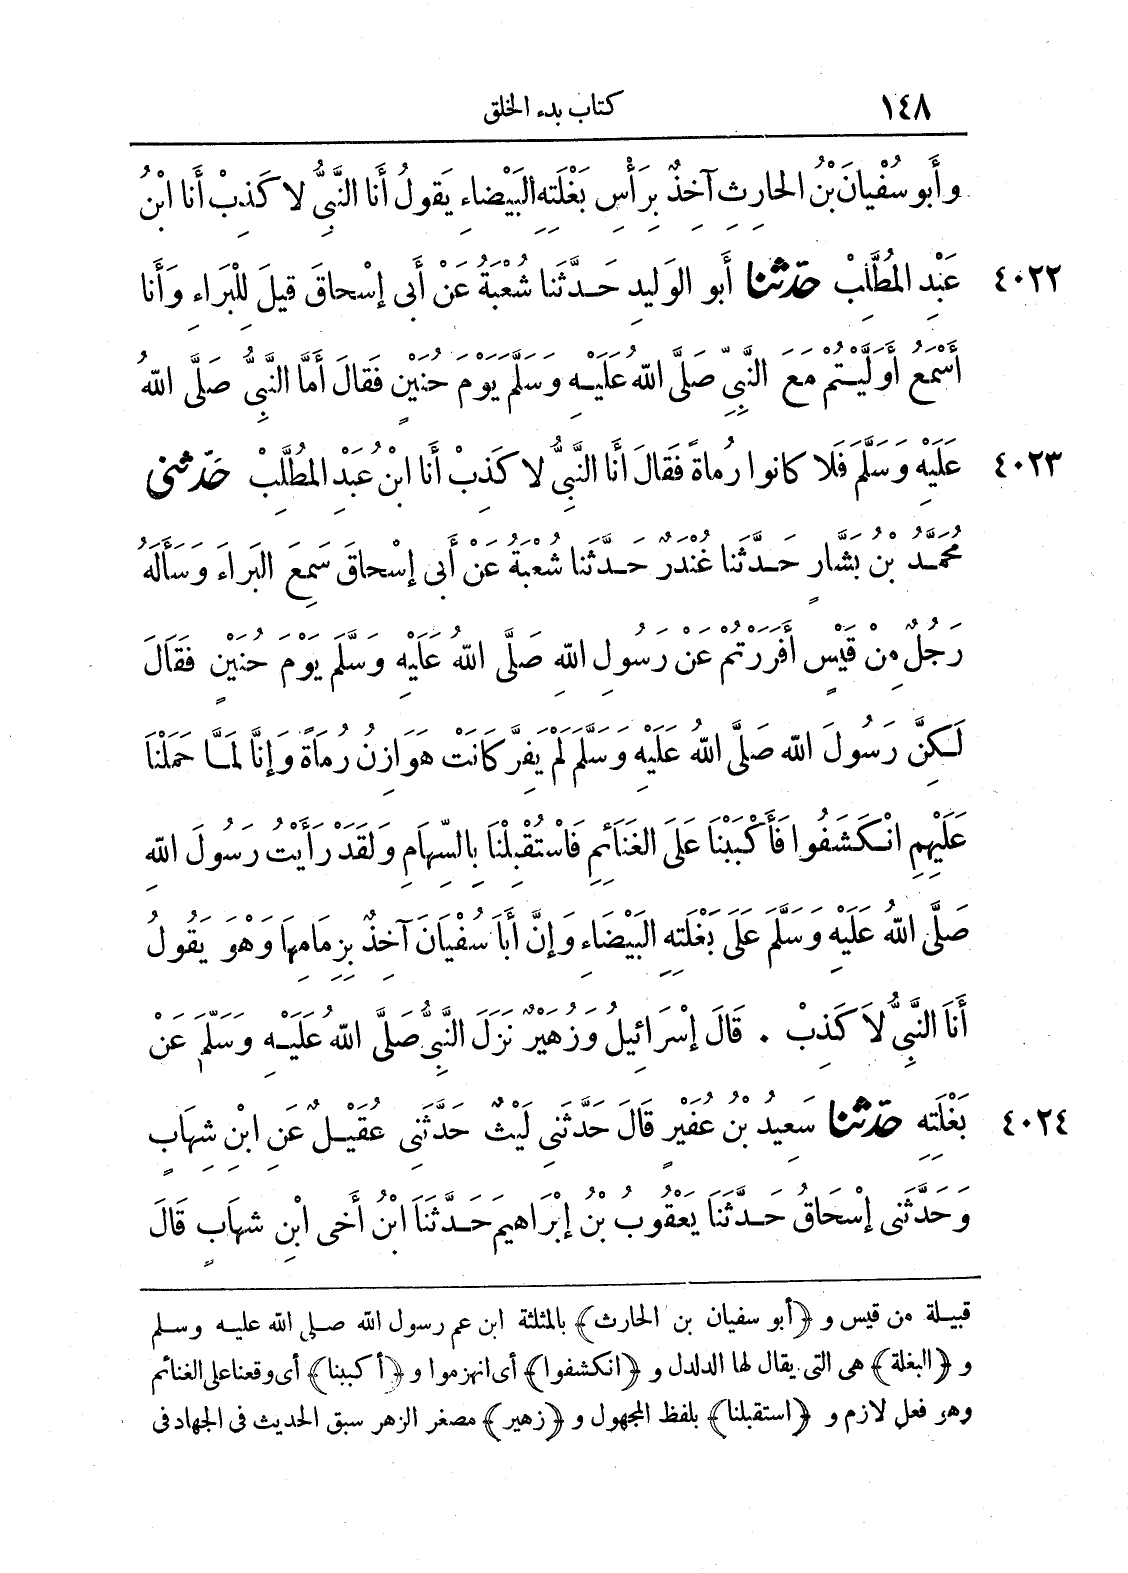 ١٤٨ كتاب بدء الخلق
وأَبو سُفْيَانَ بْنُ الحارِثِ آخِذٌ بِرَأْسِ بَغْلَتِهِ البَيْضاءِ يَقُولُ أَنا النَّبِيُّ لا كَذِبْ أَنا ابْنُ
٤٠٢٢ عَبْدِ المُطَّلِبْ حدثنا أَبو الوَلِيدِ حَدَّثَنا شُعْبَةُ عَنْ أَبى إِسْحاقَ قِيلَ لِلْبَرَاءِ وَأَنا
أَسْمَعُ أَوَلَّيْتُمْ مَعَ النَّبِيِّ صَلَّى اللهُ عَلَيْهِ وَسَلَّمَ يَوْمَ حُنَيْنٍ فَقالَ أَمَّا النَّبِيُّ صَلَّى اللهُ
٤٠٢٣ عَلَيْهِ وَسَلَّمَ فَلا كانوا رُماةً فَقالَ أَنا النَّبِيُّ لا كَذِبْ أَنا ابْنُ عَبْدِ المُطَّلِبْ حدثنى
مُحَمَّدُ بْنُ بَشَّارٍ حَدَّثَنا غُنْدَرٌ حَدَّثَنا شُعْبَةُ عَنْ أَبى إِسْحاقَ سَمِعَ البَرَاءَ وَسَأَلَهُ
رَجُلٌ مِنْ قَيْسٍ أَفَرَرْتُمْ عَنْ رَسُولِ اللهِ صَلَّى اللهُ عَلَيْهِ وَسَلَّمَ يَوْمَ حُنَيْنٍ فَقَالَ
لَكِنَّ رَسُولَ اللهِ صَلَّى اللهُ عَلَيْهِ وَسَلَّمَ لَمْ يَفِرَّ كَانَتْ هَوَازِنُ رُمَاةً وَإِنَّا لَمَّا حَمَلْنَا
عَلَيْهِمِ انْكَشَفُوا فَأَكْبَبْنَا عَلَى الغَنَائِمِ فَاسْتُقْبِلْنَا بِالسِّهَامِ وَلَقَدْ رَأَيْتُ رَسُولَ اللهِ
صَلَّى اللهُ عَلَيْهِ وَسَلَّمَ عَلَى بَغْلَتِهِ البَيْضَاءِ وَإِنَّ أَبَا سُفْيَانَ آخِذٌ بِزِمَامِهَا وَهْوَ يَقُولُ
أَنَا النَّبِيُّ لاَ كَذِبْ . قَالَ إِسْرَائِيلُ وَزُهَيْرٌ نَزَلَ النَّبِيُّ صَلَّى اللهُ عَلَيْهِ وَسَلَّمَ عَنْ
٤٠٢٤ بَغْلَتِهِ حدثنا سَعِيدُ بْنُ عُفَيْرٍ قَالَ حَدَّثَنِى لَيْثٌ حَدَّثَنِى عُقَيْلٌ عَنِ ابْنِ شِهَابٍ
وَحَدَّثَنِى إِسْحَاقُ حَدَّثَنَا يَعْقُوبُ بْنُ إِبْرَاهِيمَ حَدَّثَنَا ابْنُ أَخِى ابْنِ شِهَابٍ قَالَ
قبيلة من قيس و ﴿أبو سفيان بن الحارث﴾ بالمثلثة ابن عم رسول الله صلى الله عليه وسلم
و ﴿البغلة﴾ هى التى يقال لها الدلدل و ﴿انكشفوا﴾ أى انهزموا و ﴿أكببنا﴾ أى وقعنا على الغنائم
وهو فعل لازم و ﴿استقبلنا﴾ بلفظ المجهول و ﴿زهير﴾ مصغر الزهر سبق الحديث فى الجهاد فى